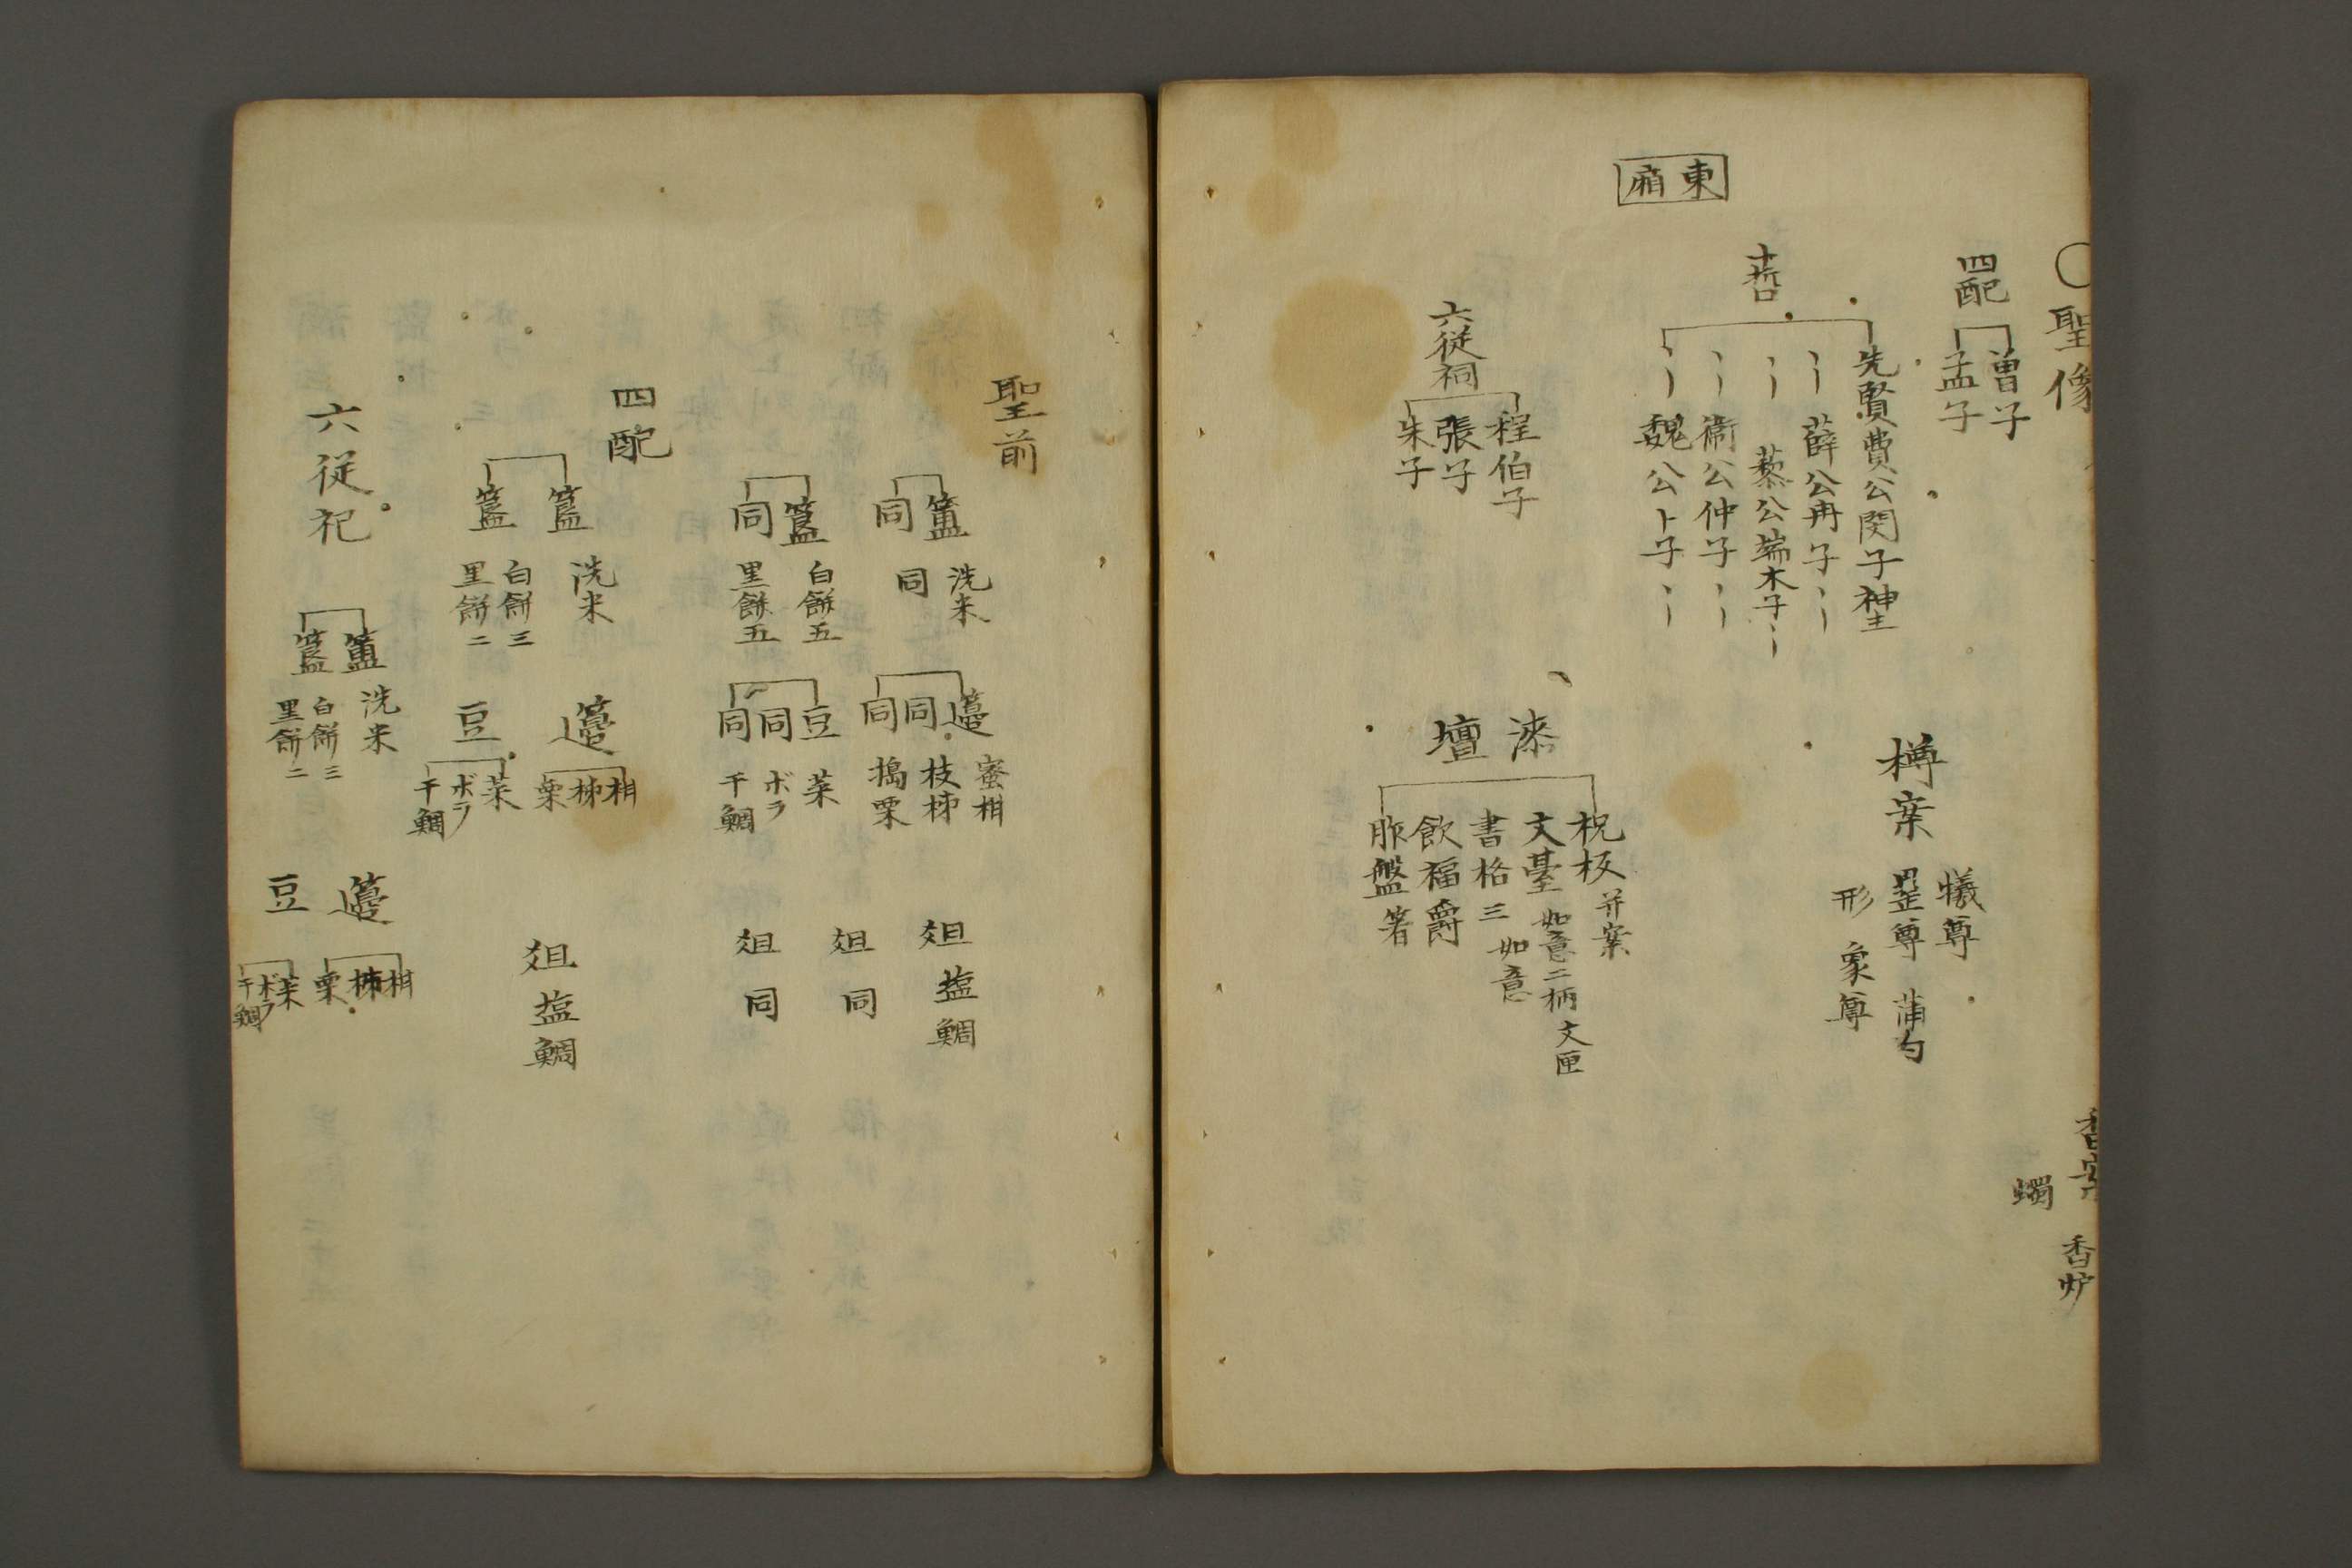 東廂
○聖像
四配
曽子
孟子
十哲
先賢費公閔子神主
〻〡薛公冉子〻〡
〻〡藜公端木子〻〡
〻〡衞公仲子〻〡
〻〡魏公卜子〻〡
六従祠
程伯子
張子
朱子
香案
香炉
蠋
樽案
犧尊
罍尊 蒲勺
形 象尊
漆壇
柷板并案
文䑓 如意二柄 文匣
書格三 如意
飲福爵
胙盤 箸
聖前
簠 洗米
同 同
簋 白餅五
同 里餅五
籩 蜜柑
同 枝柹
同 搗栗
豆 菜
同 ボラ
同 干鯛
俎 塩鯛
俎 同
俎 同
四配
簋 洗米
簋 白餅三
里餅二
籩 柑
柹
栗
豆 菜
ボラ
干鯛
俎 塩鯛
六従祀
簠 洗米
簋 白餅三
里餅二
籩 柑
柹
栗
豆 菜
ボラ
干鯛